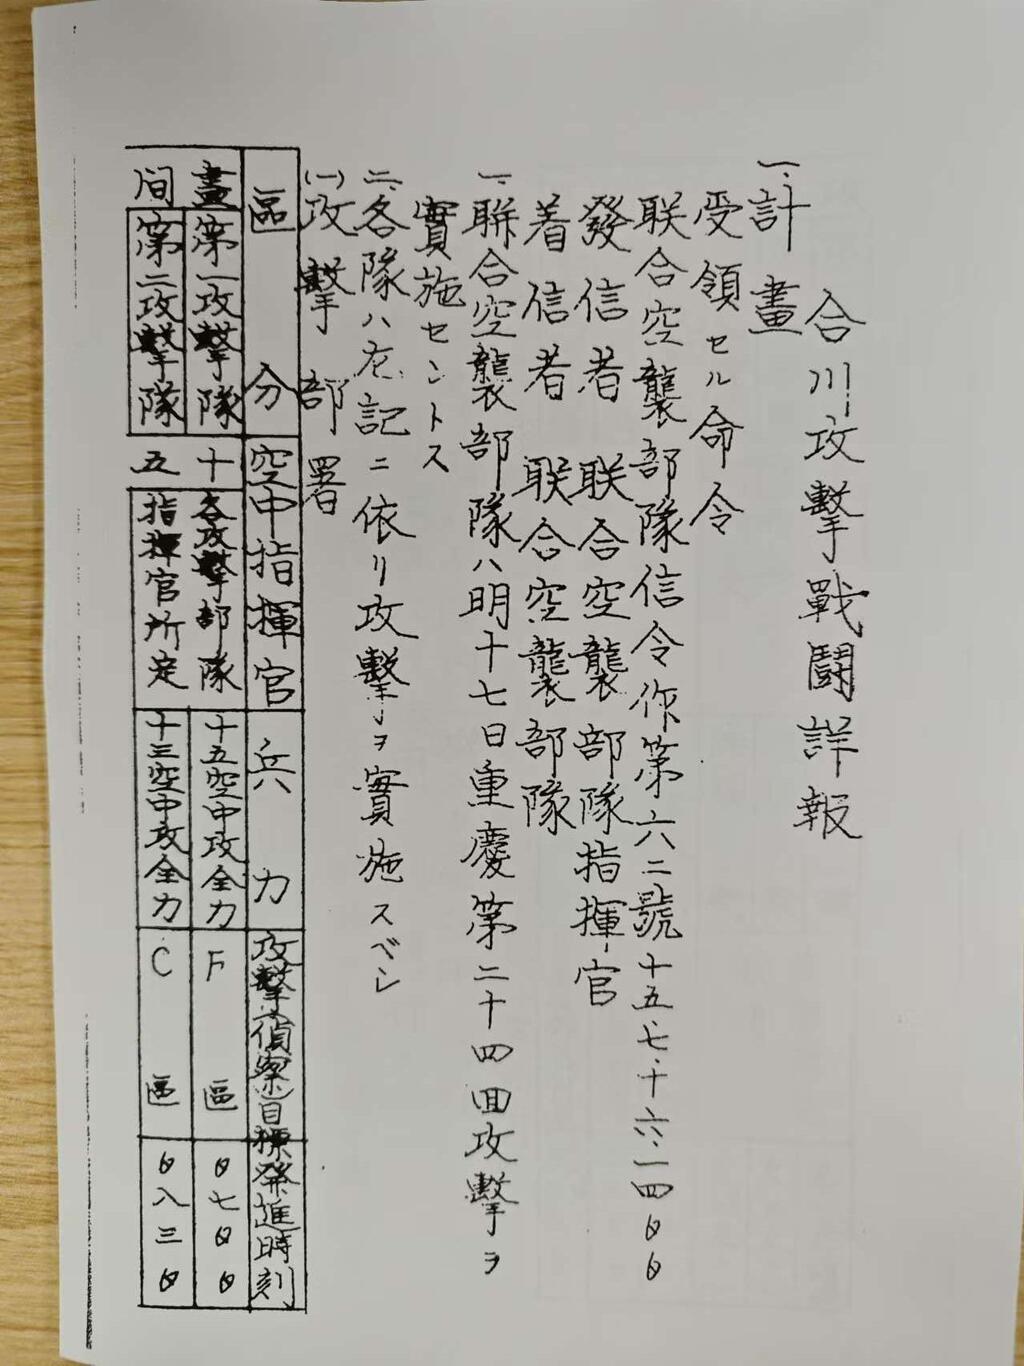 合川攻擊戰鬪詳報
一、計畫
受領セル命令
联合空襲部隊信令作第六二號十五、七、十六、一四〇〇
發信者　联合空襲部隊指揮官
着信者　联合空襲部隊
一、聨合空襲部隊ハ明十七日重慶第二十四回攻擊ヲ
實施セントス
二、各隊ハ左記ニ依リ攻擊ヲ實施スベシ
(一)攻擊部署
區分　空中指揮官　兵力　攻擊(偵察)目標　発進時刻
晝　第一攻擊隊　十　各攻擊部隊　十五空中攻全力　F區　〇七〇〇
间　第二攻擊隊　五　指揮官所定　十三空中攻全力　C區　〇八三〇